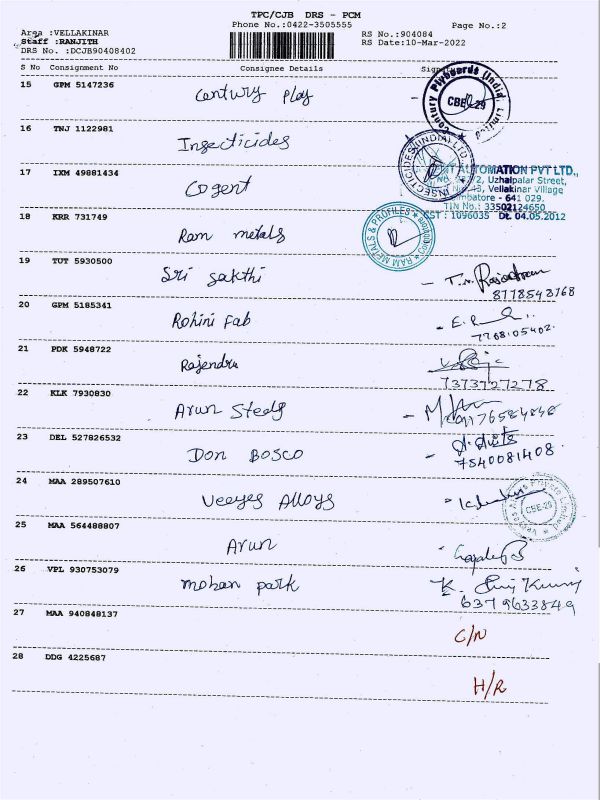 TPC/CJB DRS - PCM
Phone No.:0422-3505555
Page No.:2
Area :VELLAKINAR
Staff :RANJITH
DRS No. :DCJB90408402
RS No.:904084
RS Date:10-Mar-2022
S No Consignment No Consignee Details
15 GPM 5147236 Century Play -
Century Plyboards (India) Limited
CBE-29
16 TNJ 1122981 Insecticides
INSECTICIDES (INDIA) LTD
17 IXM 49881434 Cogent
AUTOMATION PVT LTD.,
Uzhalpalar Street,
Vellakinar Village
- 641 029.
TIN No.: 33502124650
CST : 1096035 Dt. 04.05.2012
18 KRR 731749 Ram metals
RAM METALS & PROFILES
19 TUT 5930500 Sri Sakthi -
8778543768
20 GPM 5185341 Rohini Fab -
7708105402.
21 PDK 5948722 Rajendra
7373727278
22 KLK 7930830 Arun Steels -
23 DEL 527826532 DON BOSCO -
7540081408.
24 MAA 289507610 Veeyes Alloys
CBE-29
25 MAA 564488807 Arun
26 VPL 930753079 mohan park
6379633849
27 MAA 940848137 C/N
28 DDG 4225687 H/R